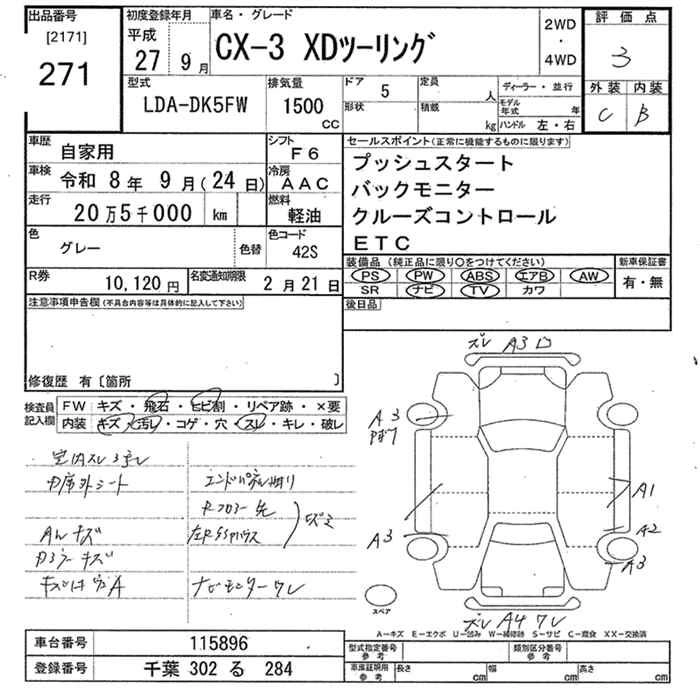 出品番号
[2171]
271
初度登録年月
平成
27 9月
車名・グレード
CX-3 XDツーリング
2WD
・
4WD
評価点
3
外装 内装
C B
型式
LDA-DK5FW
排気量
1500
cc
ドア 5
形状
定員 人
積載 kg
ディーラー・並行
モデル年式 年
ハンドル 左・右
車歴
自家用
シフト
F6
車検
令和 8年 9月(24日)
冷房
AAC
走行
20万5千000 km
燃料
軽油
色
グレー
色替
色コード
42S
R券
10,120円
名変通知期限
2月21日
セールスポイント(正常に機能するものに限ります)
プッシュスタート
バックモニター
クルーズコントロール
ETC
装備品 (純正品に限り○をつけてください)
PS PW ABS エアB AW
SR ナビ TV カワ
新車保証書
有・無
後日品
注意事項申告欄(不具合内容等は具体的に記入して下さい)
修復歴 有〔箇所 〕
検査員記入欄
FW キズ・飛石・ヒビ割・リペア跡・×要
内装 キズ・汚レ・コゲ・穴・スレ・キレ・破レ
室内スレ
シート
Aムキズ
キズ
A
エンドパネル
Rフロアー
ナビモニターワレ
ズレ A3
A3
A3
A1
A2
A3
スペア
ズレ A4 ワレ
A-キズ E-エクボ U-凹み W-補修跡 S-サビ C-腐食 XX-交換済
車台番号 115896
登録番号 千葉 302 る 284
型式指定番号 参考
類別区分番号 参考
車庫証明用 参考
長さ cm 幅 cm 高さ cm